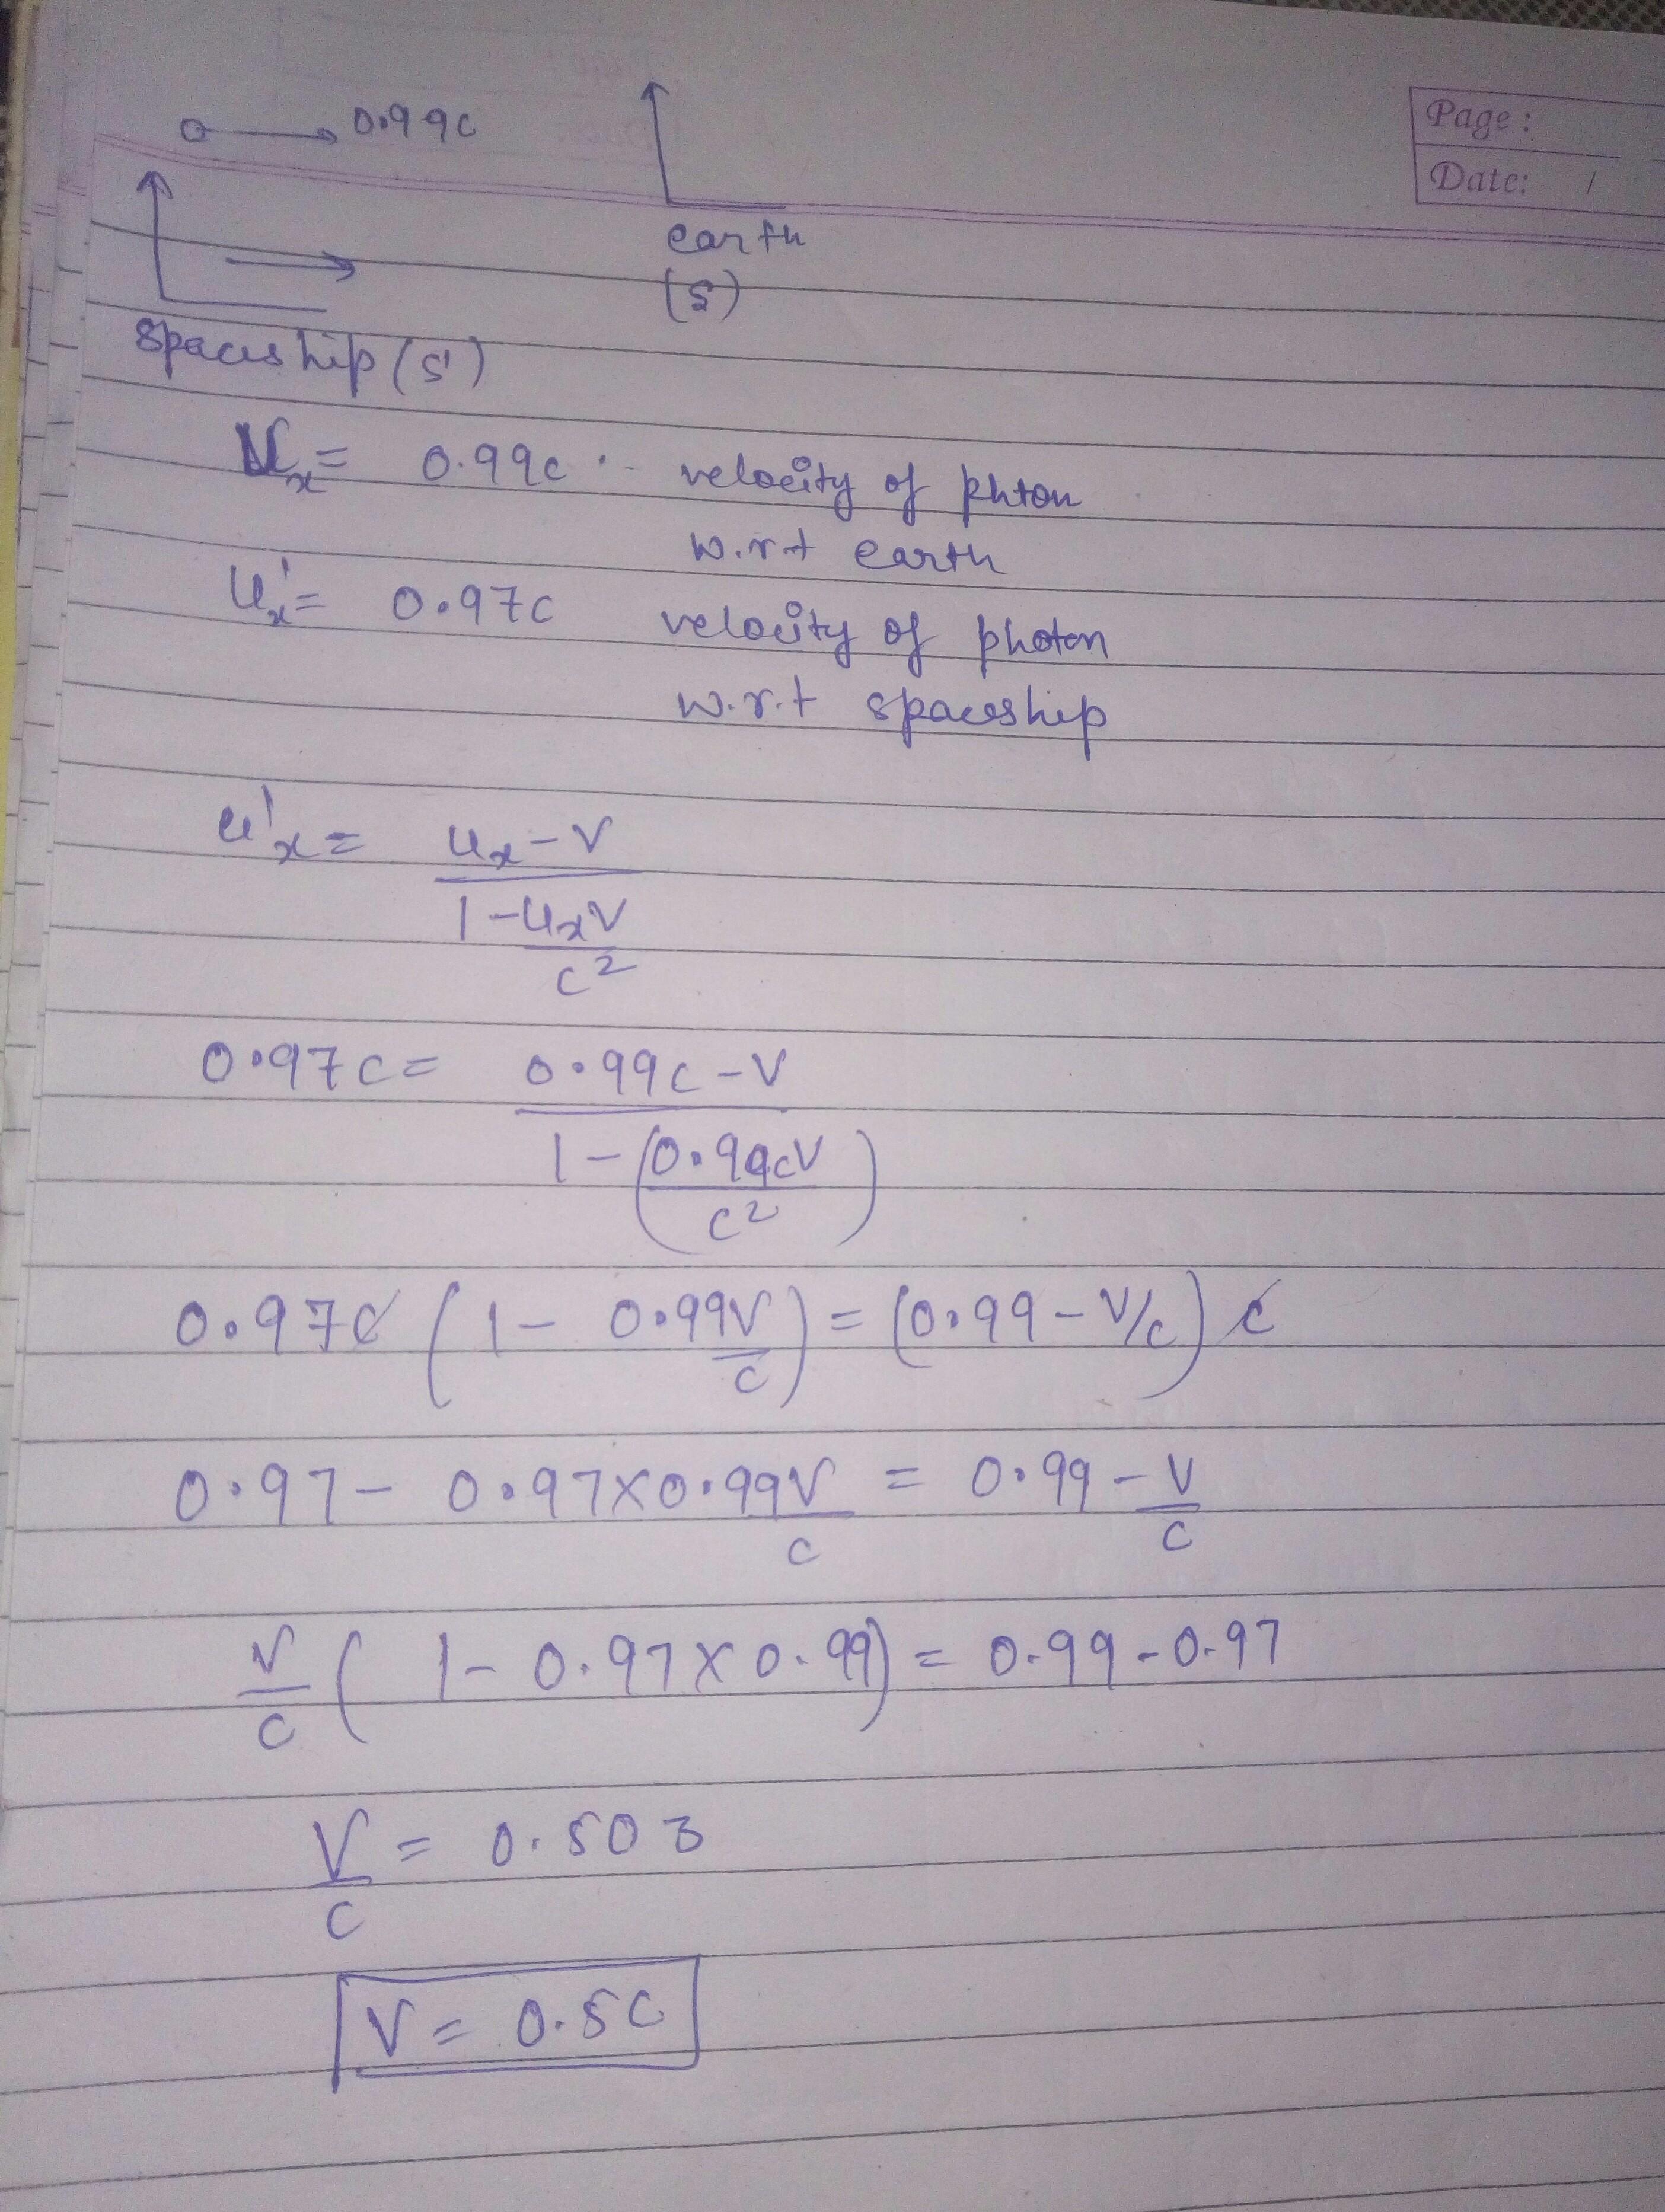 Page :
Date: /
0.99c
earth
(S)
spaceship (S')
Ux = 0.99c velocity of phton
w.r.t earth
Ux' = 0.97c velocity of photon
w.r.t spaceship
u'x = ux - v
1 - uxv
c²
0.97c = 0.99c - v
1 - (0.99cv
c²)
0.97c (1 - 0.99v/c) = (0.99 - v/c) c
0.97 - 0.97×0.99v/c = 0.99 - v/c
v/c (1 - 0.97×0.99) = 0.99 - 0.97
v/c = 0.503
v = 0.5c